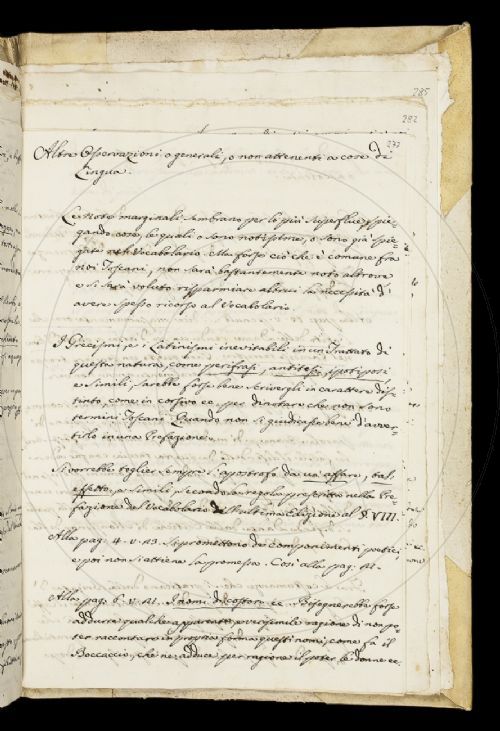 285
282
277
Altre Osservazioni o generali, o non attenenti a cose di
Lingua.
Le Note marginali sembrano per lo più superflue, spie-
gando cose, le quali o sono notissime, o sono già spie-
gate nel Vocabolario. Ma forse ciò che è comune fra
noi Toscani, non sarà bastantemente noto altrove
e si sarà voluto risparmiare altrui la necessità d'
avere spesso ricorso al Vocabolario.
I Grecismi, e i Latinismi inevitabili in un Trattato di
questa natura, come perifrasi, antitesi, ipotiposi
e simili, sarebbe forse bene scrivergli in carattere dis-
tinto, come in corsivo ec. per dinotare che non sono
termini Toscani. Quando non si giudicasse bene d'avver-
tirlo in una Prefazione.
Si vorrebbe toglier sempre l'apostrofo da un affare, tal
effetto, e simili secondo la regola prescritta nella Pre-
fazione del Vocabolario dell'ultima Edizione al §. VIII.
Alla pag. 4. v. 13. Si promettono de' componimenti poetici,
e poi non si attiene la promessa. Così alla pag. 12.
Alla pag. 6. v. 12. I nomi di costoro ec. Bisognerebbe forse
addurre qualche apparente, e verisimile ragione di non po-
ter raccontare in propria forma questi nomi, come fa il
Boccaccio, che ne adduce per ragione il poter le donne ec.